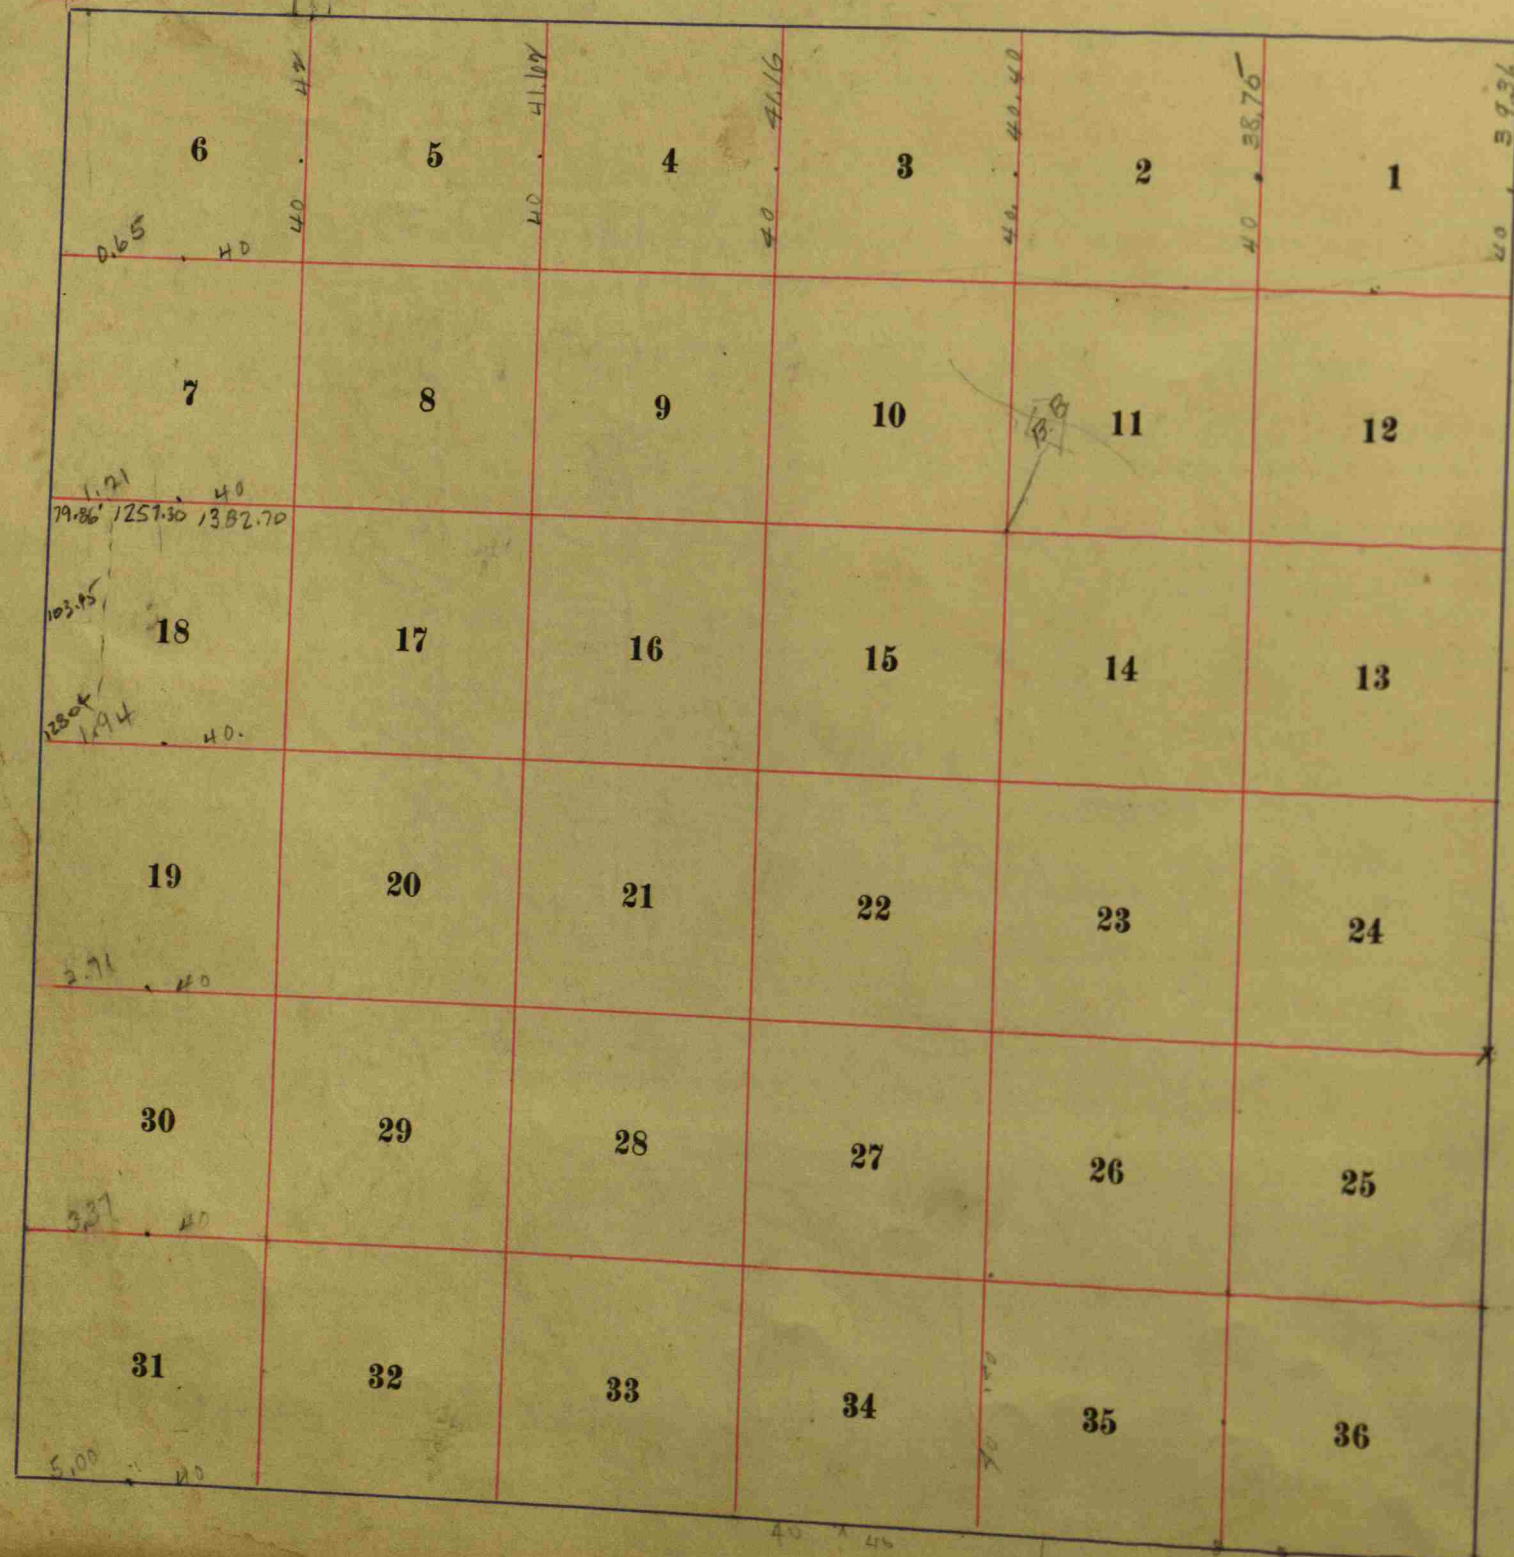 42 41.16 40.40 38.75 39.36
6 5 4 3 2 1
40 40 40 40. 40 40
0.65 40
7 8 9 10 11 12
B.B
1.21 40
79.86' 1257.30 1382.70
103.95
18 17 16 15 14 13
1.94 40.
19 20 21 22 23 24
2.71 40
30 29 28 27 26 25
3.37 40
31 32 33 34 35 36
5.00 40
40 40